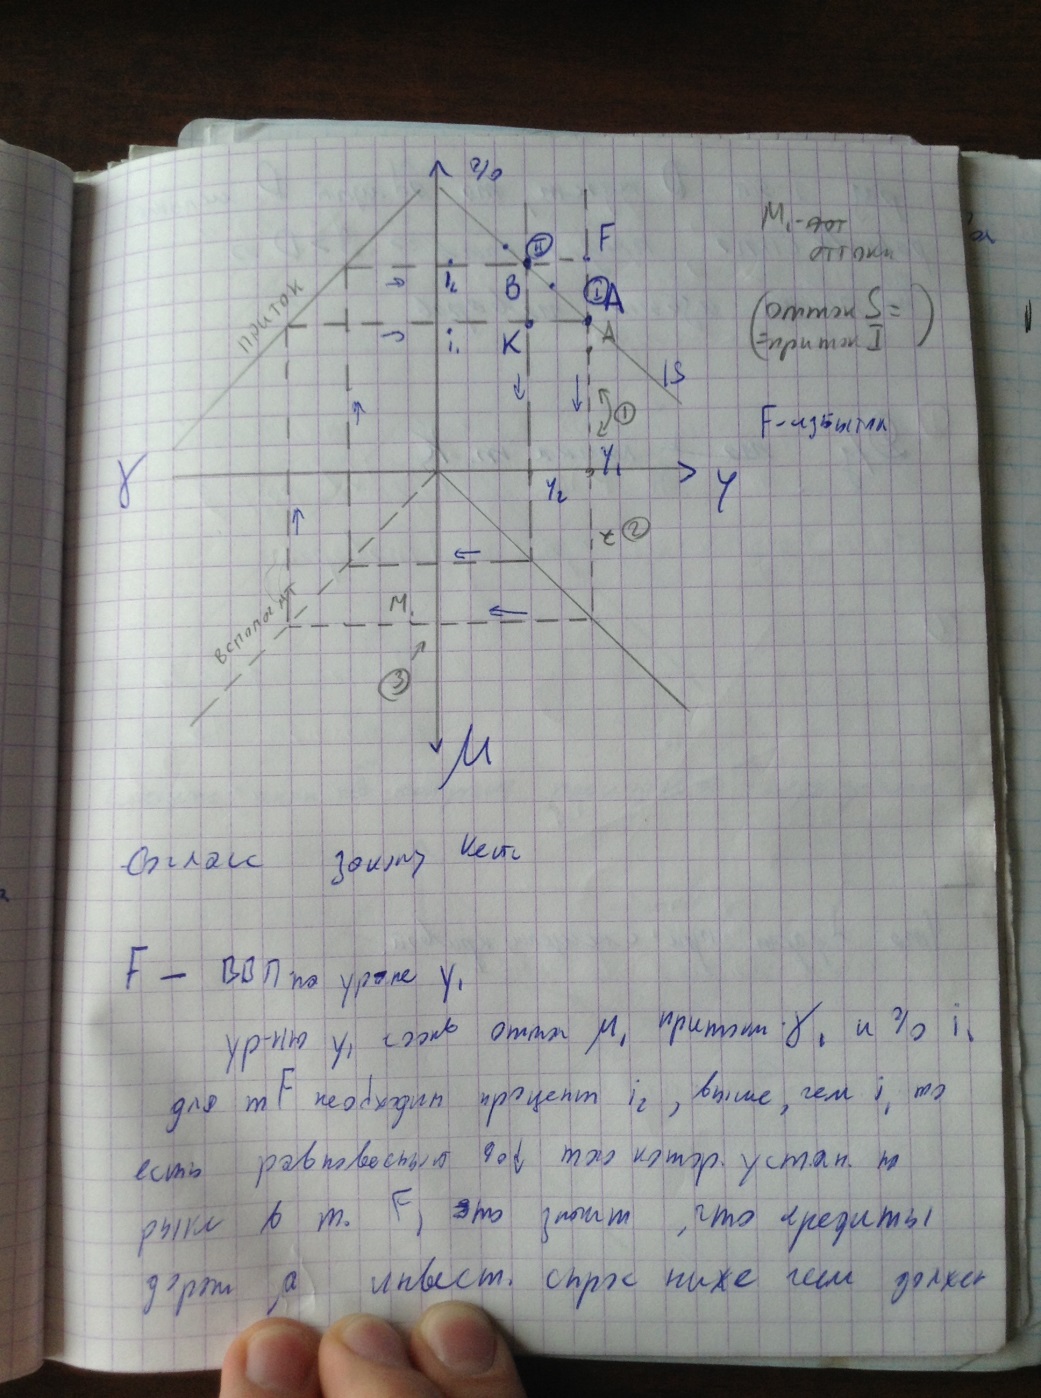 %
II
F
M₁ -
оттоки
i₂
B
I
A
(отток S =
= приток I)
приток
i₁
K
A
IS
1
F - избыток
Y₁
γ
Y₂
Y
2
M₁
3
M
Согласс закону Кейнс
F — ВВП по уровне y₁
ур-ню y₁ соотв отток M₁ приток γ₁ и % i₁
для т F необходим процент i₂, выше, чем i, то
есть равновесный того котор. устан. на
рынке в т. F, это значит, что кредиты
дороги а инвест. спрос ниже чем должен